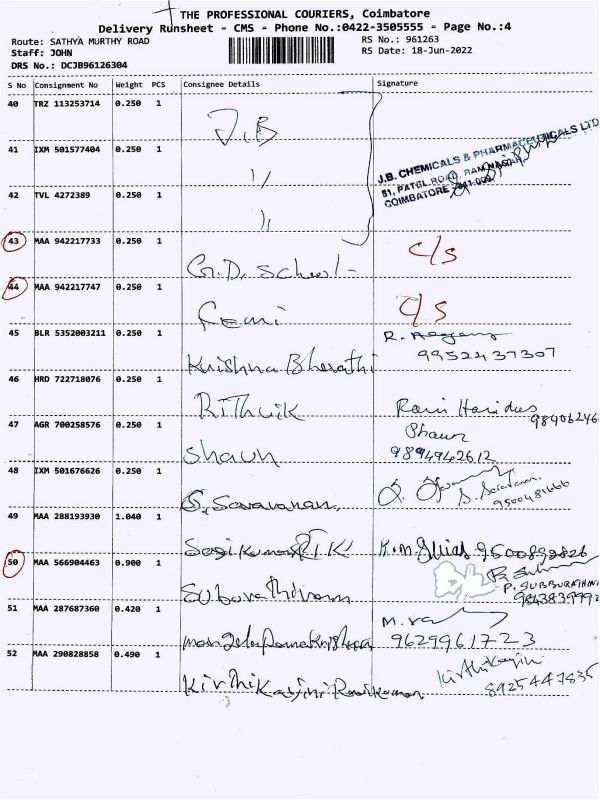 THE PROFESSIONAL COURIERS, Coimbatore
Delivery Runsheet - CMS - Phone No.:0422-3505555 - Page No.:4
Route: SATHYA MURTHY ROAD
RS No.: 961263
Staff: JOHN
RS Date: 18-Jun-2022
DRS No.: DCJB96126304
S No Consignment No Weight PCS Consignee Details Signature
40 TRZ 113253714 0.250 1
J.B
41 IXM 501577404 0.250 1
J.B. CHEMICALS & PHARMACEUTICALS LTD
51, PATEL ROAD, RAM NAGAR
COIMBATORE
42 TVL 4272389 0.250 1
43 MAA 942217733 0.250 1
G.D. School - C/S
44 MAA 942217747 0.250 1
Femi C/S
45 BLR 5352003211 0.250 1
Krishna Bharathi 9952437307
46 HRD 722718076 0.250 1
Rithvik Ram Haridas
47 AGR 700258576 0.250 1
Shaun Shaun 9894942612
48 IXM 501676626 0.250 1
S. Saravanan S. Saravanan
49 MAA 288193930 1.040 1
Sasikumar 9500892826
50 MAA 566904463 0.900 1
P. SUBBURATHINAM
51 MAA 287687360 0.420 1
9629961723
52 MAA 290828858 0.490 1
Kirthikayini Ravikumar Kirthikayini 8925447835